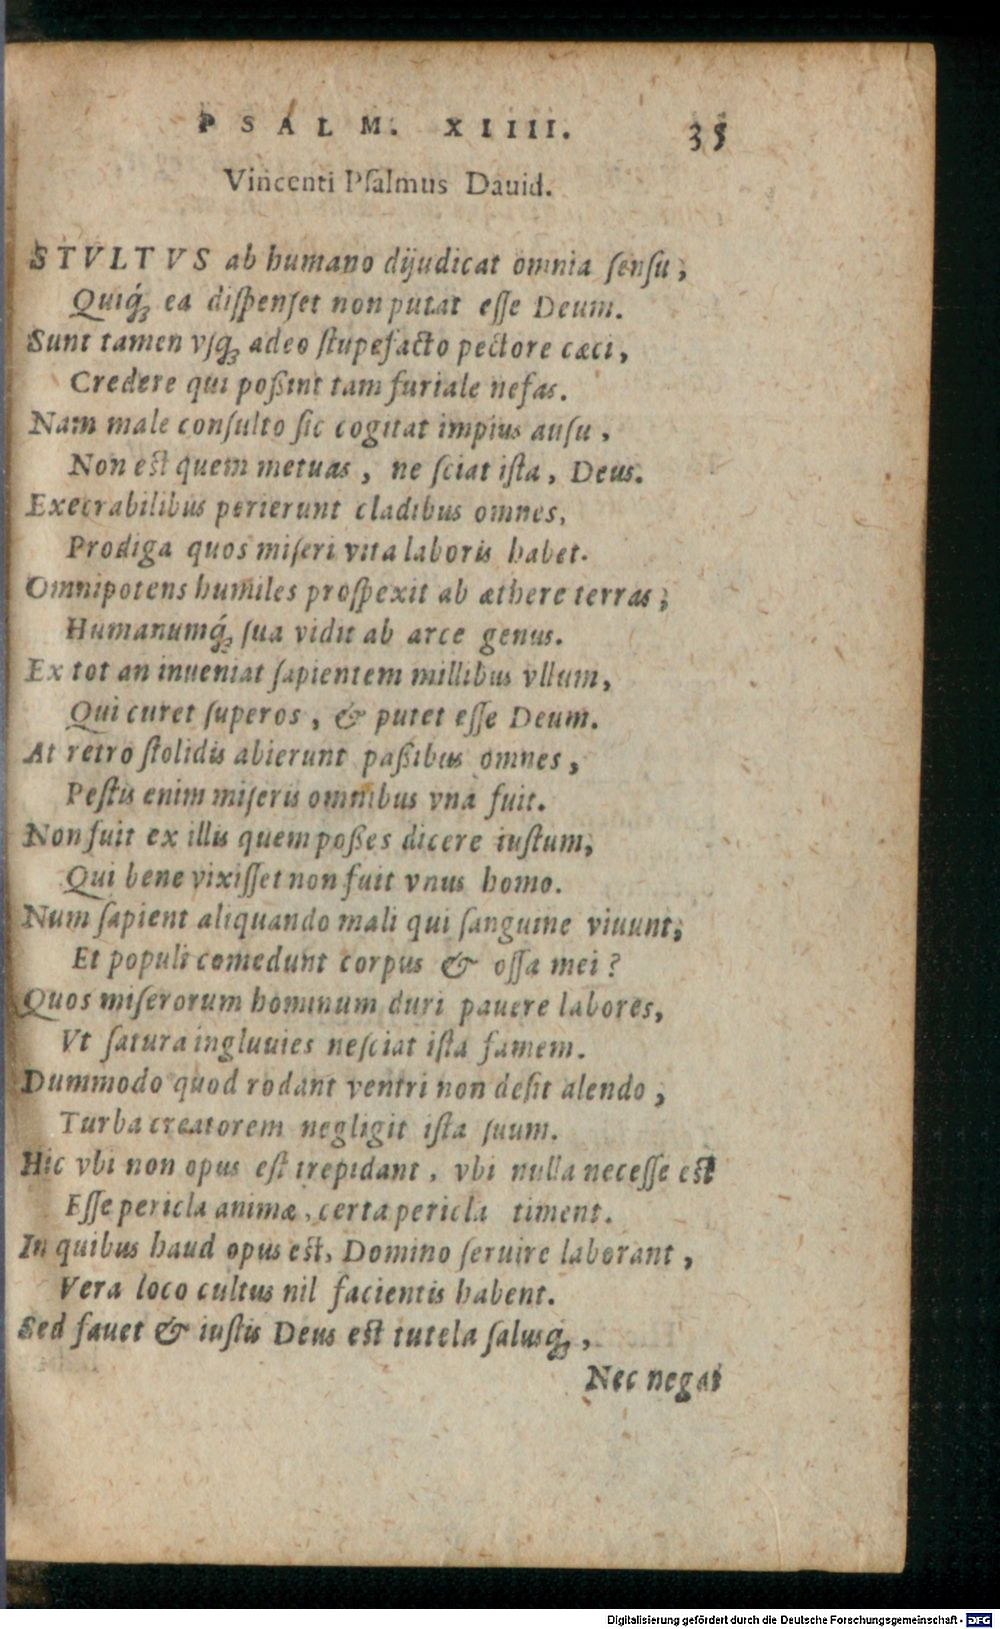 PSALM. XIIII. 35
Vincenti Psalmus Dauid.
STVLTVS ab humano dijudicat omnia sensu,
Quiq́ꝫ ea dispenset non putat esse Deum.
Sunt tamen vsqꝫ adeo stupefacto pectore cæci,
Credere qui poßint tam furiale nefas.
Nam male consulto sic cogitat impius ausu,
Non est quem metuas, ne sciat ista, Deus.
Execrabilibus perierunt cladibus omnes,
Prodiga quos miseri vita laboris habet.
Omnipotens humiles prospexit ab æthere terras;
Humanumq́ꝫ sua vidit ab arce genus.
Ex tot an inueniat sapientem millibus vllum,
Qui curet superos, & putet esse Deum.
At retro stolidis abierunt paßibus omnes,
Pestis enim miseris omnibus vna fuit.
Non fuit ex illis quem poßes dicere iustum,
Qui bene vixisset non fuit vnus homo.
Num sapient aliquando mali qui sanguine viuunt;
Et populi comedunt corpus & ossa mei?
Quos miserorum hominum duri pauere labores,
Vt satura ingluuies nesciat ista famem.
Dummodo quod rodant ventri non desit alendo,
Turba creatorem negligit ista suum.
Hic vbi non opus est trepidant, vbi nulla necesse est
Esse pericla animæ, certa pericla timent.
In quibus haud opus est, Domino seruire laborant,
Vera loco cultus nil facientis habent.
Sed fauet & iustis Deus est tutela salusqꝫ,
Nec negat
Digitalisierung gefördert durch die Deutsche Forschungsgemeinschaft - DFG